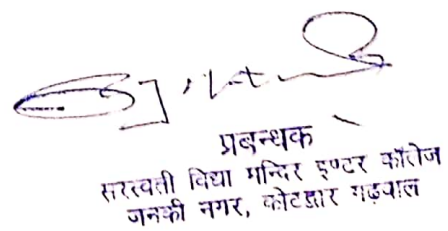 प्रबन्धक
सरस्वती विद्या मन्दिर इण्टर कॉलेज
जनकी नगर, कोटद्वार गढ़वाल